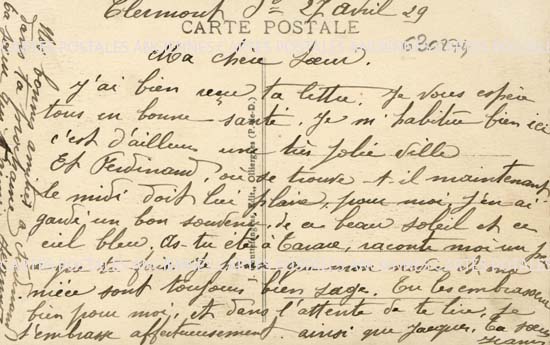 Clermont Fd 27 avril 29
CARTE POSTALE
630274
Ma chère sœur.
J'ai bien reçu ta lettre. Je vous espère
tous en bonne santé. Je m'habitue bien ici
c'est d'ailleurs une très jolie ville
Et Ferdinand, où se trouve-t-il maintenant
le midi doit lui plaire, pour moi, j'en ai
gardé un bon souvenir de ce beau soleil et ce
ciel bleu. As-tu été à Tarare, raconte moi un peu
que mon neveu et ma
nièce sont toujours bien sage. Tu les embrasseras
bien pour moi, et dans l'attente de te lire, je
t'embrasse affectueusement ainsi que Jacques. Ta sœur
Mes bonnes amitiés à Ferdinand
dans ta prochaine